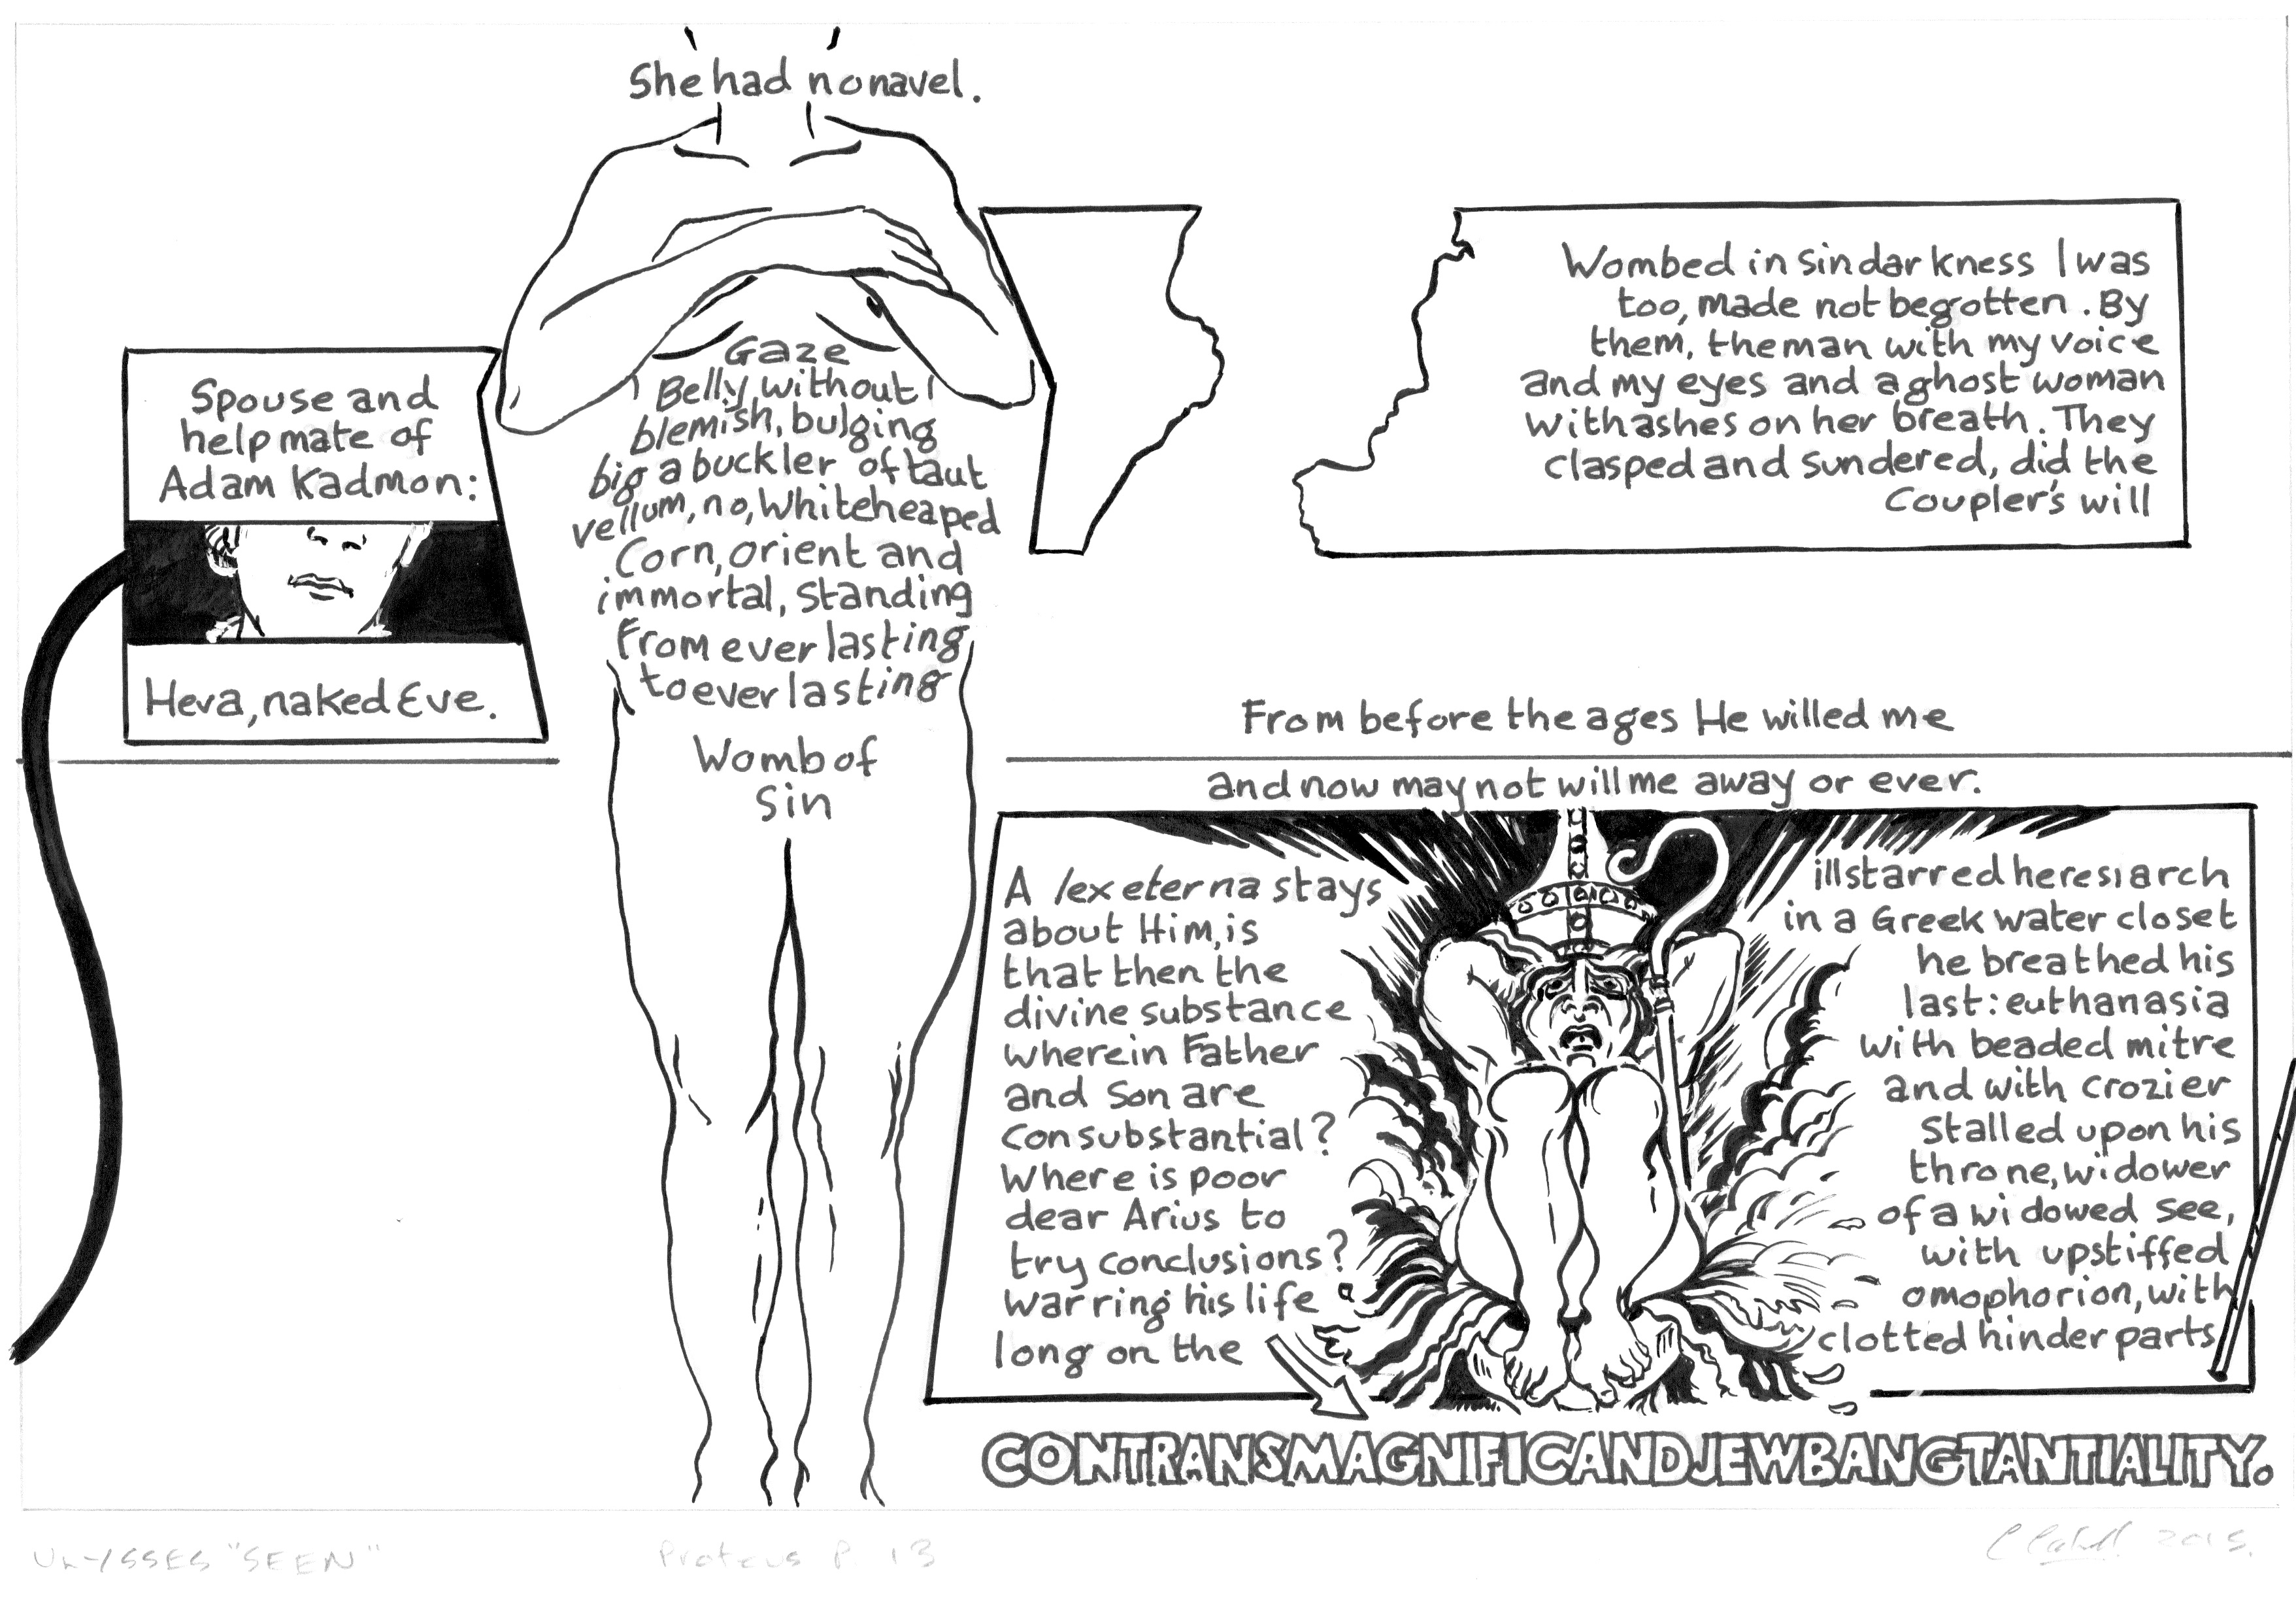 Spouse and
helpmate of
Adam Kadmon:
Heva, naked Eve.
She had no navel.
Gaze
Belly without
blemish, bulging
big a buckler of taut
vellum, no, whiteheaped
Corn, orient and
immortal, standing
From everlasting
to everlasting
Womb of
Sin
Wombed in sin darkness I was
too, made not begotten. By
them, the man with my voice
and my eyes and a ghost woman
with ashes on her breath. They
clasped and sundered, did the
Coupler's will
From before the ages He willed me
and now may not will me away or ever.
A lex eterna stays
about Him, is
that then the
divine substance
wherein Father
and Son are
Consubstantial?
Where is poor
dear Arius to
try conclusions?
Warring his life
long on the
CONTRANSMAGNIFICANDJEWBANGTANTIALITY.
illstarred heresiarch
in a Greek water closet
he breathed his
last: euthanasia
with beaded mitre
and with crozier
Stalled upon his
throne, widower
of a widowed see,
with upstiffed
omophorion, with
clotted hinderparts
ULYSSES "SEEN"
Proteus P. 13
2015.